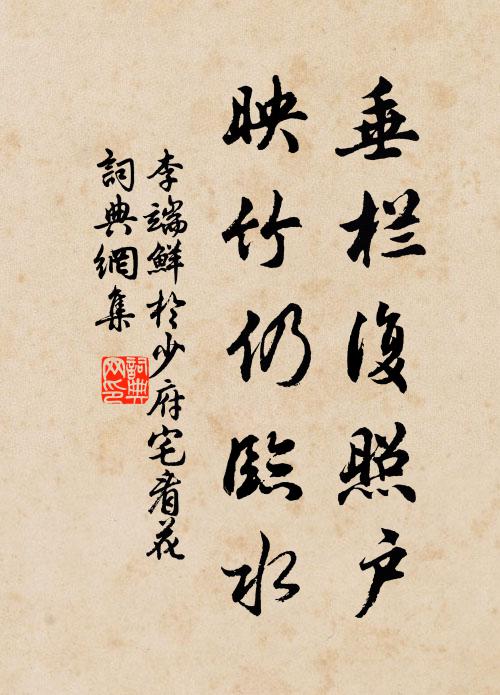 垂栏復照户
映竹仍臨水
李端鮮於少府宅看花
詞典網集
詞典网印